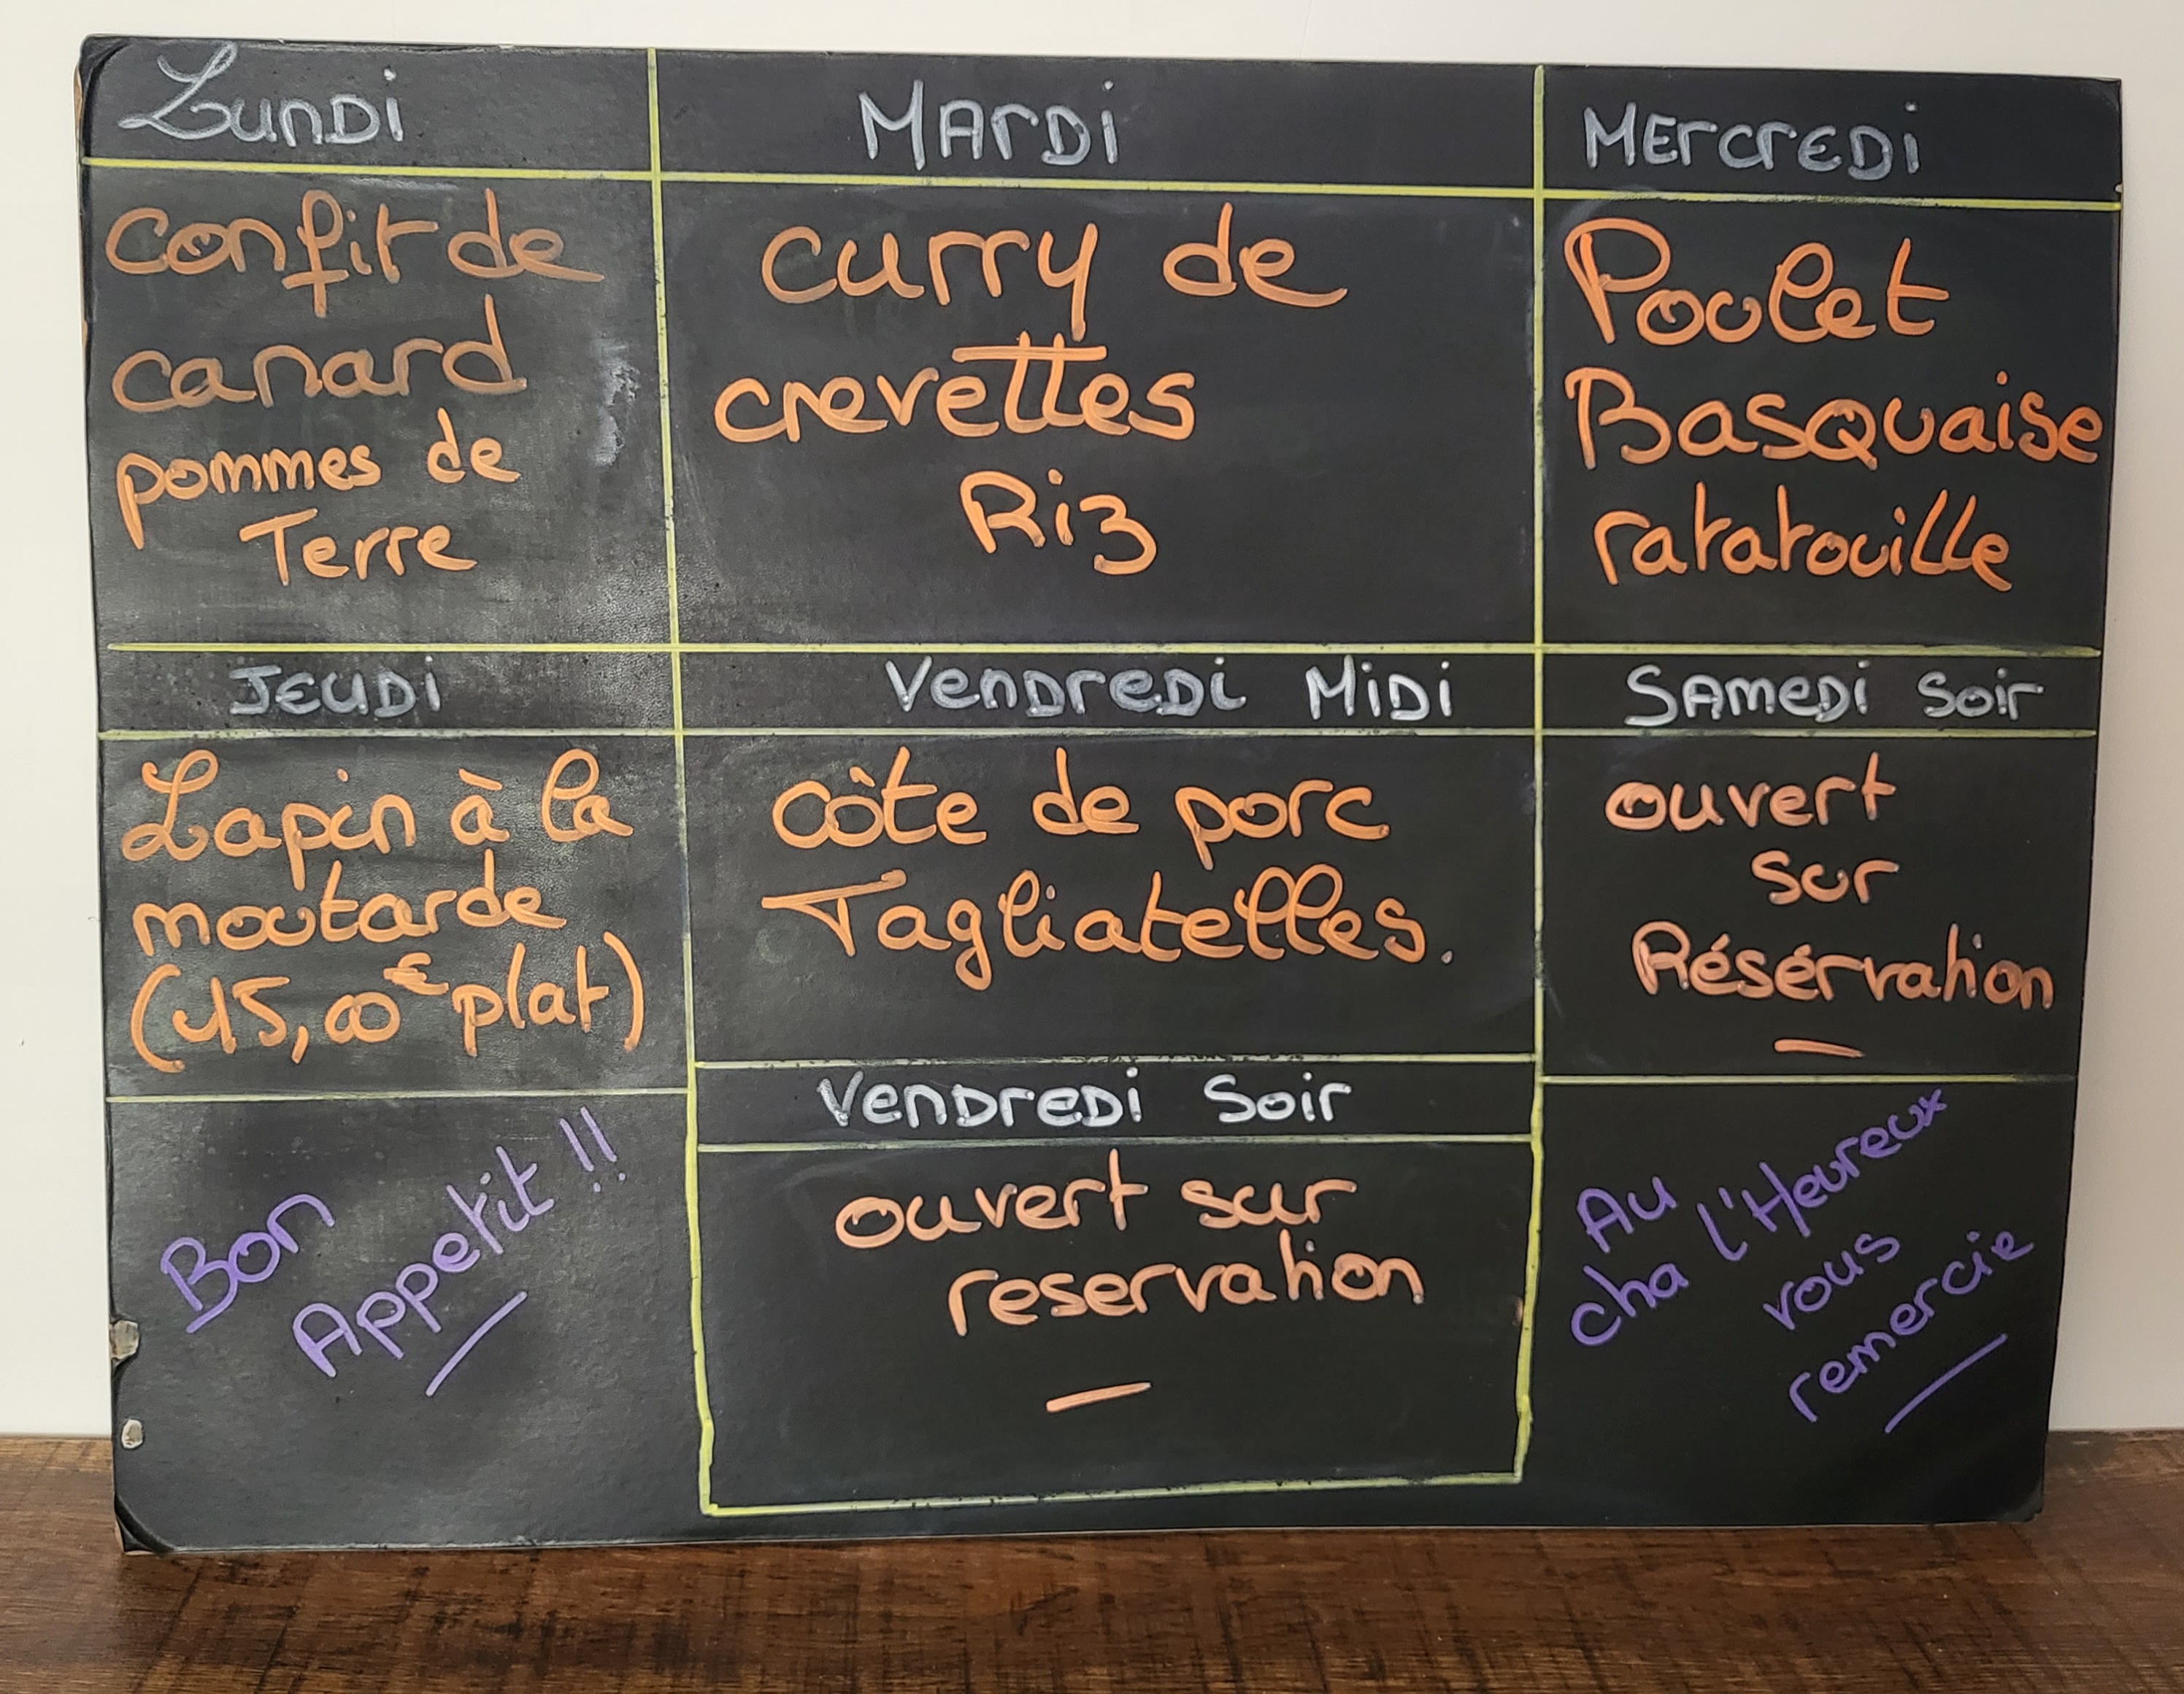 Lundi
Mardi
Mercredi
confit de
canard
pommes de
Terre
curry de
crevettes
Riz
Poulet
Basquaise
ratatouille
Jeudi
Vendredi Midi
Samedi Soir
Lapin à la
moutarde
(15,00€ plat)
Côte de porc
Tagliatelles.
ouvert
sur
Réservation
Vendredi Soir
ouvert sur
reservation
Bon
Appetit !!
Au
cha l'Heureux
vous
remercie